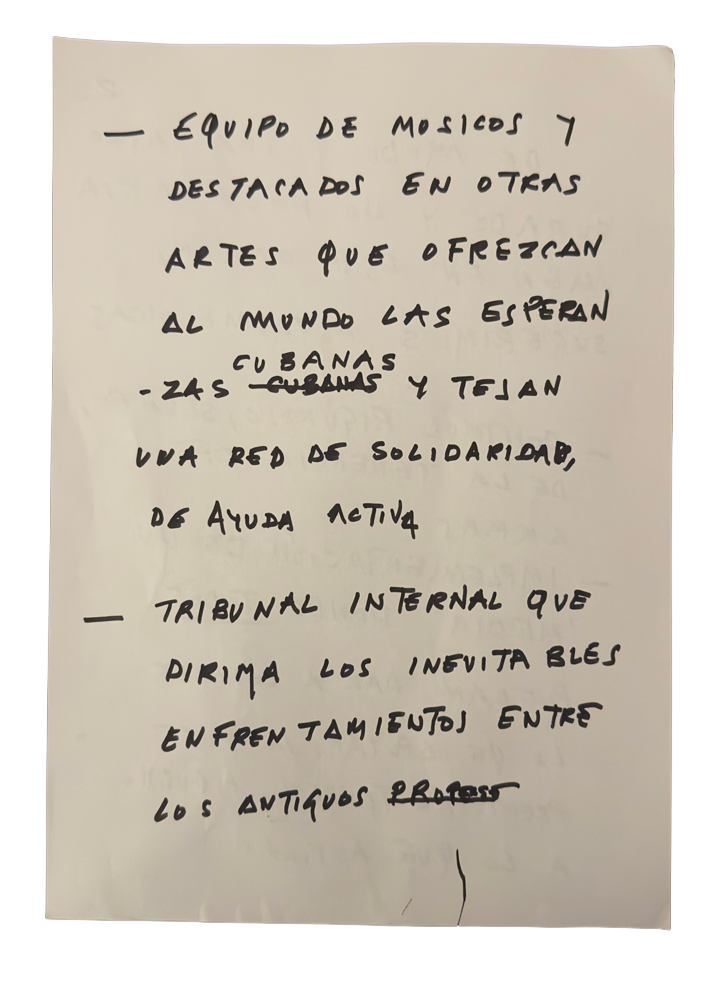 — EQUIPO DE MUSICOS Y
DESTACADOS EN OTRAS
ARTES QUE OFREZCAN
AL MUNDO LAS ESPERAN
CUBANAS
-ZAS CUBANAS Y TEJAN
UNA RED DE SOLIDARIDAD,
DE AYUDA ACTIVA
— TRIBUNAL INTERNAL QUE
DIRIMA LOS INEVITABLES
ENFRENTAMIENTOS ENTRE
LOS ANTIGUOS